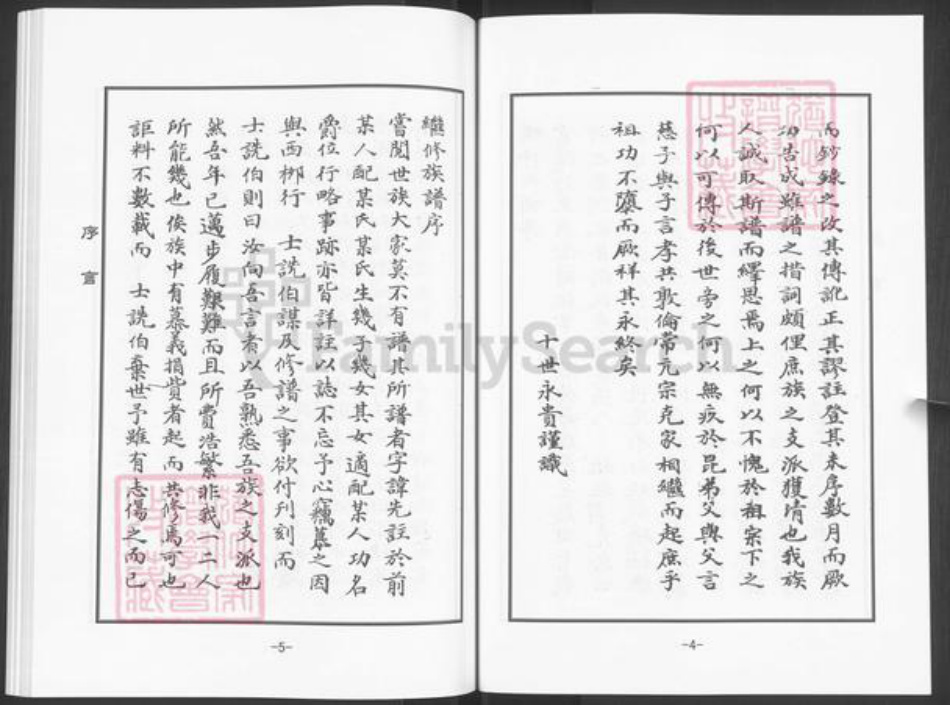 而鈔錄之改其傳訛正其謬註登其未序數月而厥
功告成雖譜之措詞頗俚庶族之支派獲清也我族
人誠取斯譜而繹思焉上之何以不愧於祖宗下之
何以可傳於後世旁之何以無疚於昆弟父與父言
慈子與子言孝共敦倫常亢宗克家相繼而起庶乎
祖功不隳而厥祥其永終矣
十世永貴謹識
-4-
繼修族譜序
嘗閱世族大家莫不有譜其所譜者字諱先註於前
某人配某氏某氏生幾子幾女其女適配某人功名
爵位行略事跡亦皆詳註以誌不忘予心竊慕之因
與西梆行 士詵伯謀及修譜之事欲付刊刻而
士詵伯則曰汝向吾言者以吾熟悉吾族之支派也
然吾年已邁步履艱難而且所費浩繁非我一二人
所能幾也俟族中有慕義捐貲者起而共修焉可也
詎料不數載而 士詵伯棄世予雖有志傷之而已
序言
-5-
FamilySearch